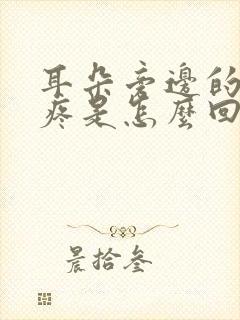 耳朵旁邊的
疼是怎麼回
晨拾叁